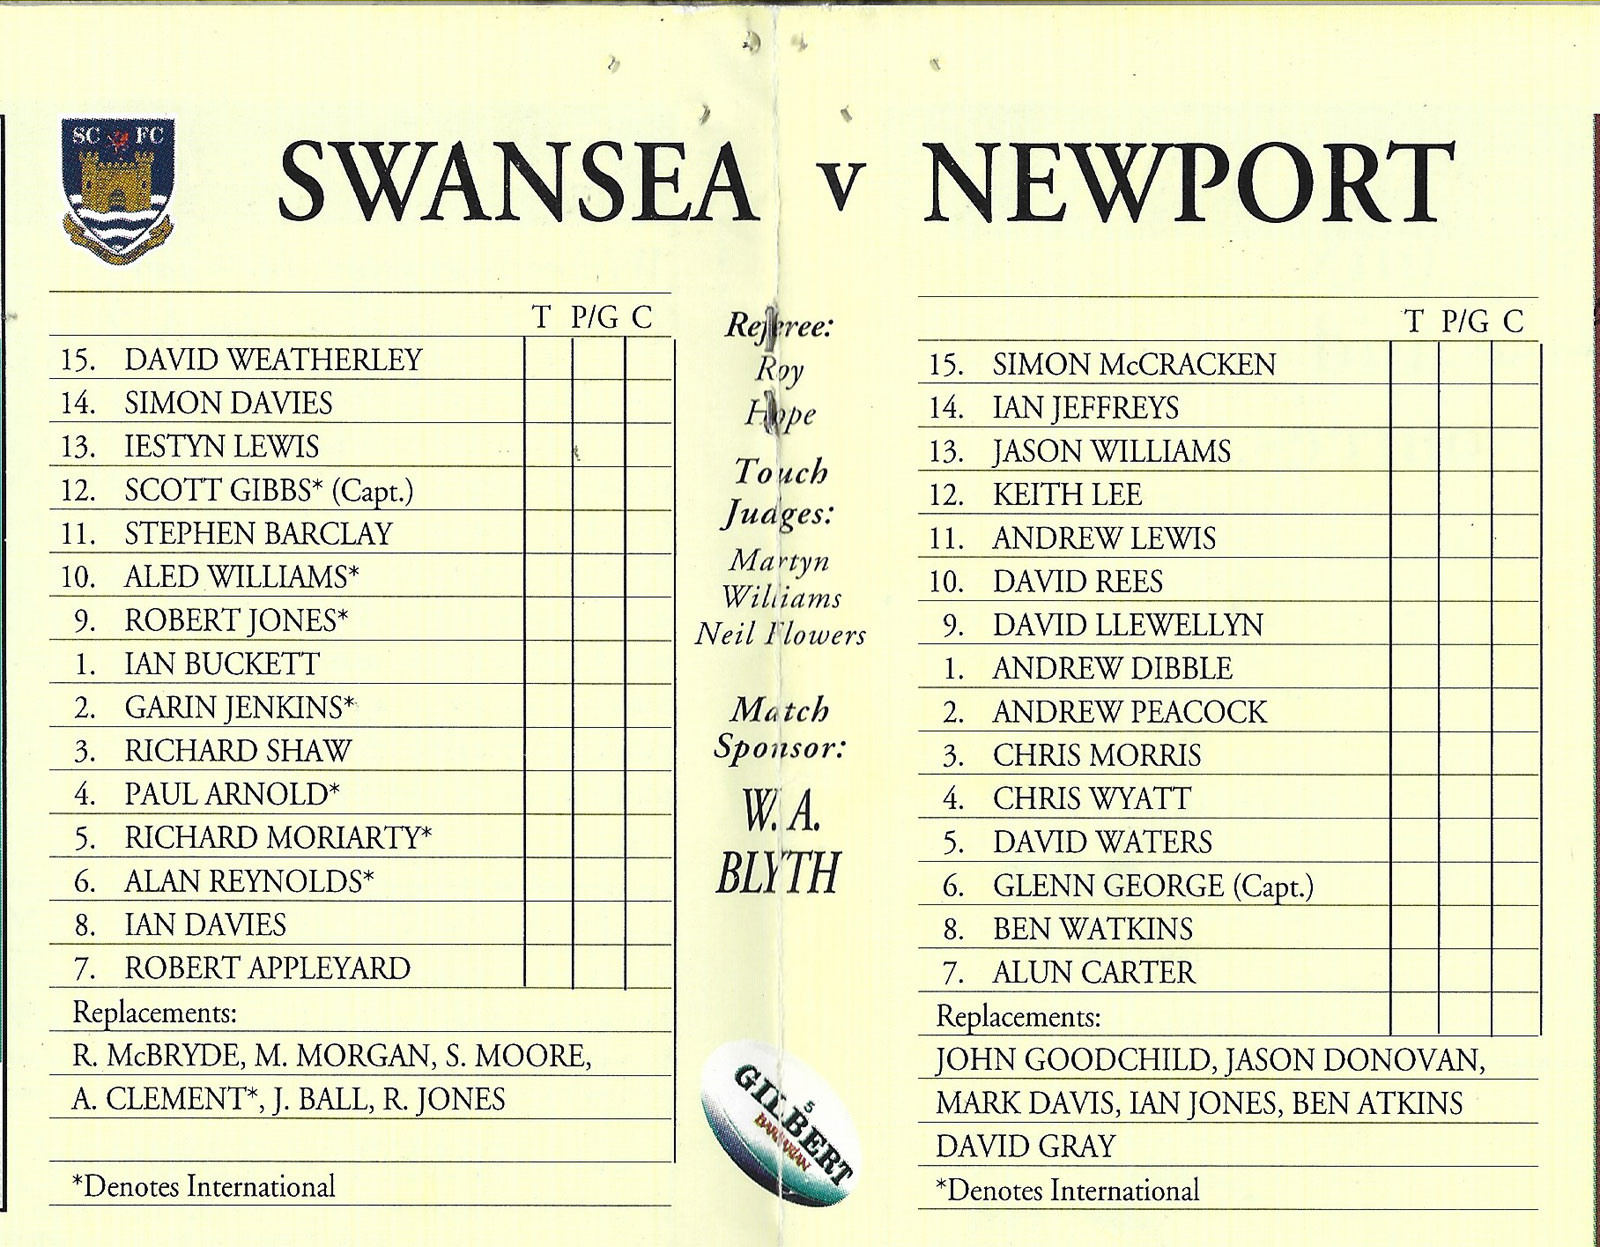 SC FC
SWANSEA v NEWPORT
T P/G C
15. DAVID WEATHERLEY
14. SIMON DAVIES
13. IESTYN LEWIS
12. SCOTT GIBBS* (Capt.)
11. STEPHEN BARCLAY
10. ALED WILLIAMS*
9. ROBERT JONES*
1. IAN BUCKETT
2. GARIN JENKINS*
3. RICHARD SHAW
4. PAUL ARNOLD*
5. RICHARD MORIARTY*
6. ALAN REYNOLDS*
8. IAN DAVIES
7. ROBERT APPLEYARD
Replacements:
R. McBRYDE, M. MORGAN, S. MOORE,
A. CLEMENT*, J. BALL, R. JONES
*Denotes International
Referee:
Roy
Hope
Touch
Judges:
Martyn
Williams
Neil Flowers
Match
Sponsor:
W. A.
BLYTH
5
GILBERT
BARBARIAN
T P/G C
15. SIMON McCRACKEN
14. IAN JEFFREYS
13. JASON WILLIAMS
12. KEITH LEE
11. ANDREW LEWIS
10. DAVID REES
9. DAVID LLEWELLYN
1. ANDREW DIBBLE
2. ANDREW PEACOCK
3. CHRIS MORRIS
4. CHRIS WYATT
5. DAVID WATERS
6. GLENN GEORGE (Capt.)
8. BEN WATKINS
7. ALUN CARTER
Replacements:
JOHN GOODCHILD, JASON DONOVAN,
MARK DAVIS, IAN JONES, BEN ATKINS
DAVID GRAY
*Denotes International